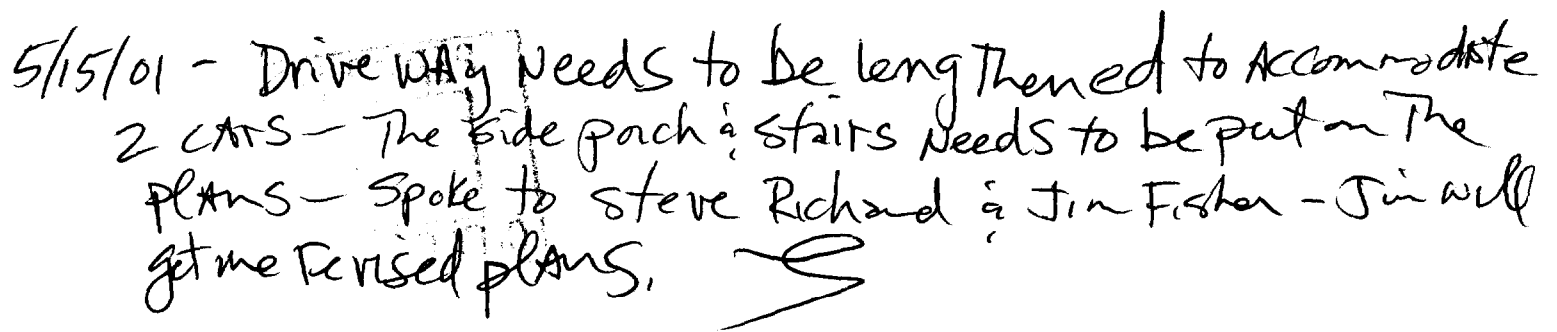 5/15/01 - Drive way Needs to be lengthened to Accommodate
2 cars - The side porch & stairs Needs to be put on The
plans - Spoke to Steve Richard & Jim Fisher - Jim will
get me revised plans.